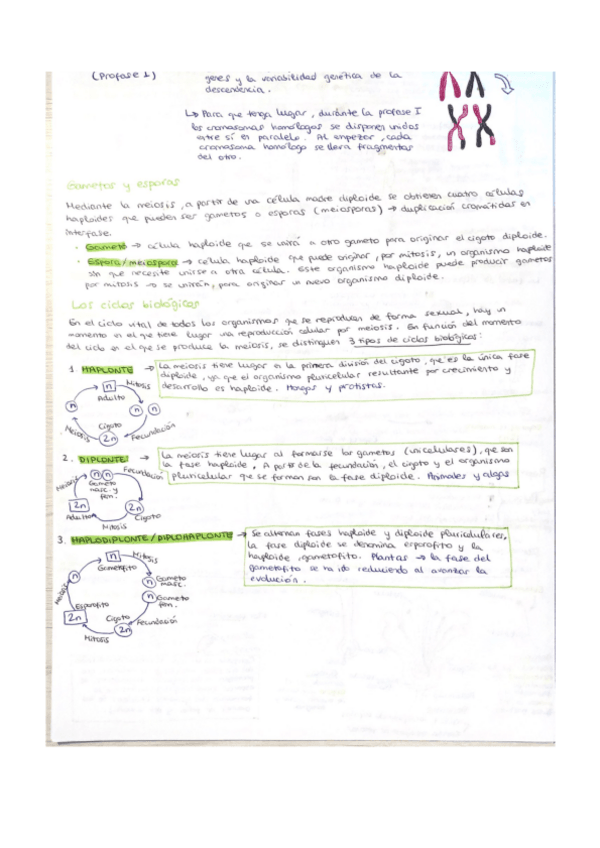 (Profase I) genes y la variabilidad genética de la
descendencia.
↳ Para que tenga lugar, durante la profase I
los cromosomas homólogos se disponen unidos
entre sí en paralelo. Al empezar, cada
cromosoma homólogo se lleva fragmentos
del otro.
Gametos y esporas
Mediante la meiosis, a partir de una célula madre diploide se obtienen cuatro células
haploides que pueden ser gametos o esporas (meiosporas) → duplicación cromátidas en
interfase.
· Gameto → célula haploide que se unirá a otro gameto para originar el cigoto diploide.
· Espora/meiospora → célula haploide que puede originar, por mitosis, un organismo haploide
sin que necesite unirse a otra célula. Este organismo haploide puede producir gametos
por mitosis → se unirán, para originar un nuevo organismo diploide.
Los ciclos biológicos
En el ciclo vital de todos los organismos que se reproducen de forma sexual, hay un
momento en el que tiene lugar una reproducción celular por meiosis. En función del momento
del ciclo en el que se produce la meiosis, se distinguen 3 tipos de ciclos biológicos:
1. HAPLONTE → La meiosis tiene lugar en la primera división del cigoto, que es la única fase
diploide, ya que el organismo pluricelular resultante por crecimiento y
desarrollo es haploide. Hongos y protistas.
n Mitosis
Adulto
n
n n
Cigoto
Meiosis 2n Fecundación
2. DIPLONTE → La meiosis tiene lugar al formarse los gametos (unicelulares), que son
la fase haploide. A partir de la fecundación, el cigoto y el organismo
pluricelular que se forman son la fase diploide. Animales y algas
Meiosis n n Fecundación
Gameto
masc. y
fem.
2n 2n
Adulto Cigoto
Mitosis
3. HAPLODIPLONTE/DIPLOHAPLONTE → Se alternan fases haploide y diploide pluricelulares,
la fase diploide se denomina esporofito y la
haploide, gametofito. Plantas → la fase del
gametofito se ha ido reduciendo al avanzar la
evolución.
n Mitosis
Gametofito
n
n Gameto
masc.
n Gameto
fem.
Meiosis
Esporofito
2n Cigoto Fecundación
2n
Mitosis